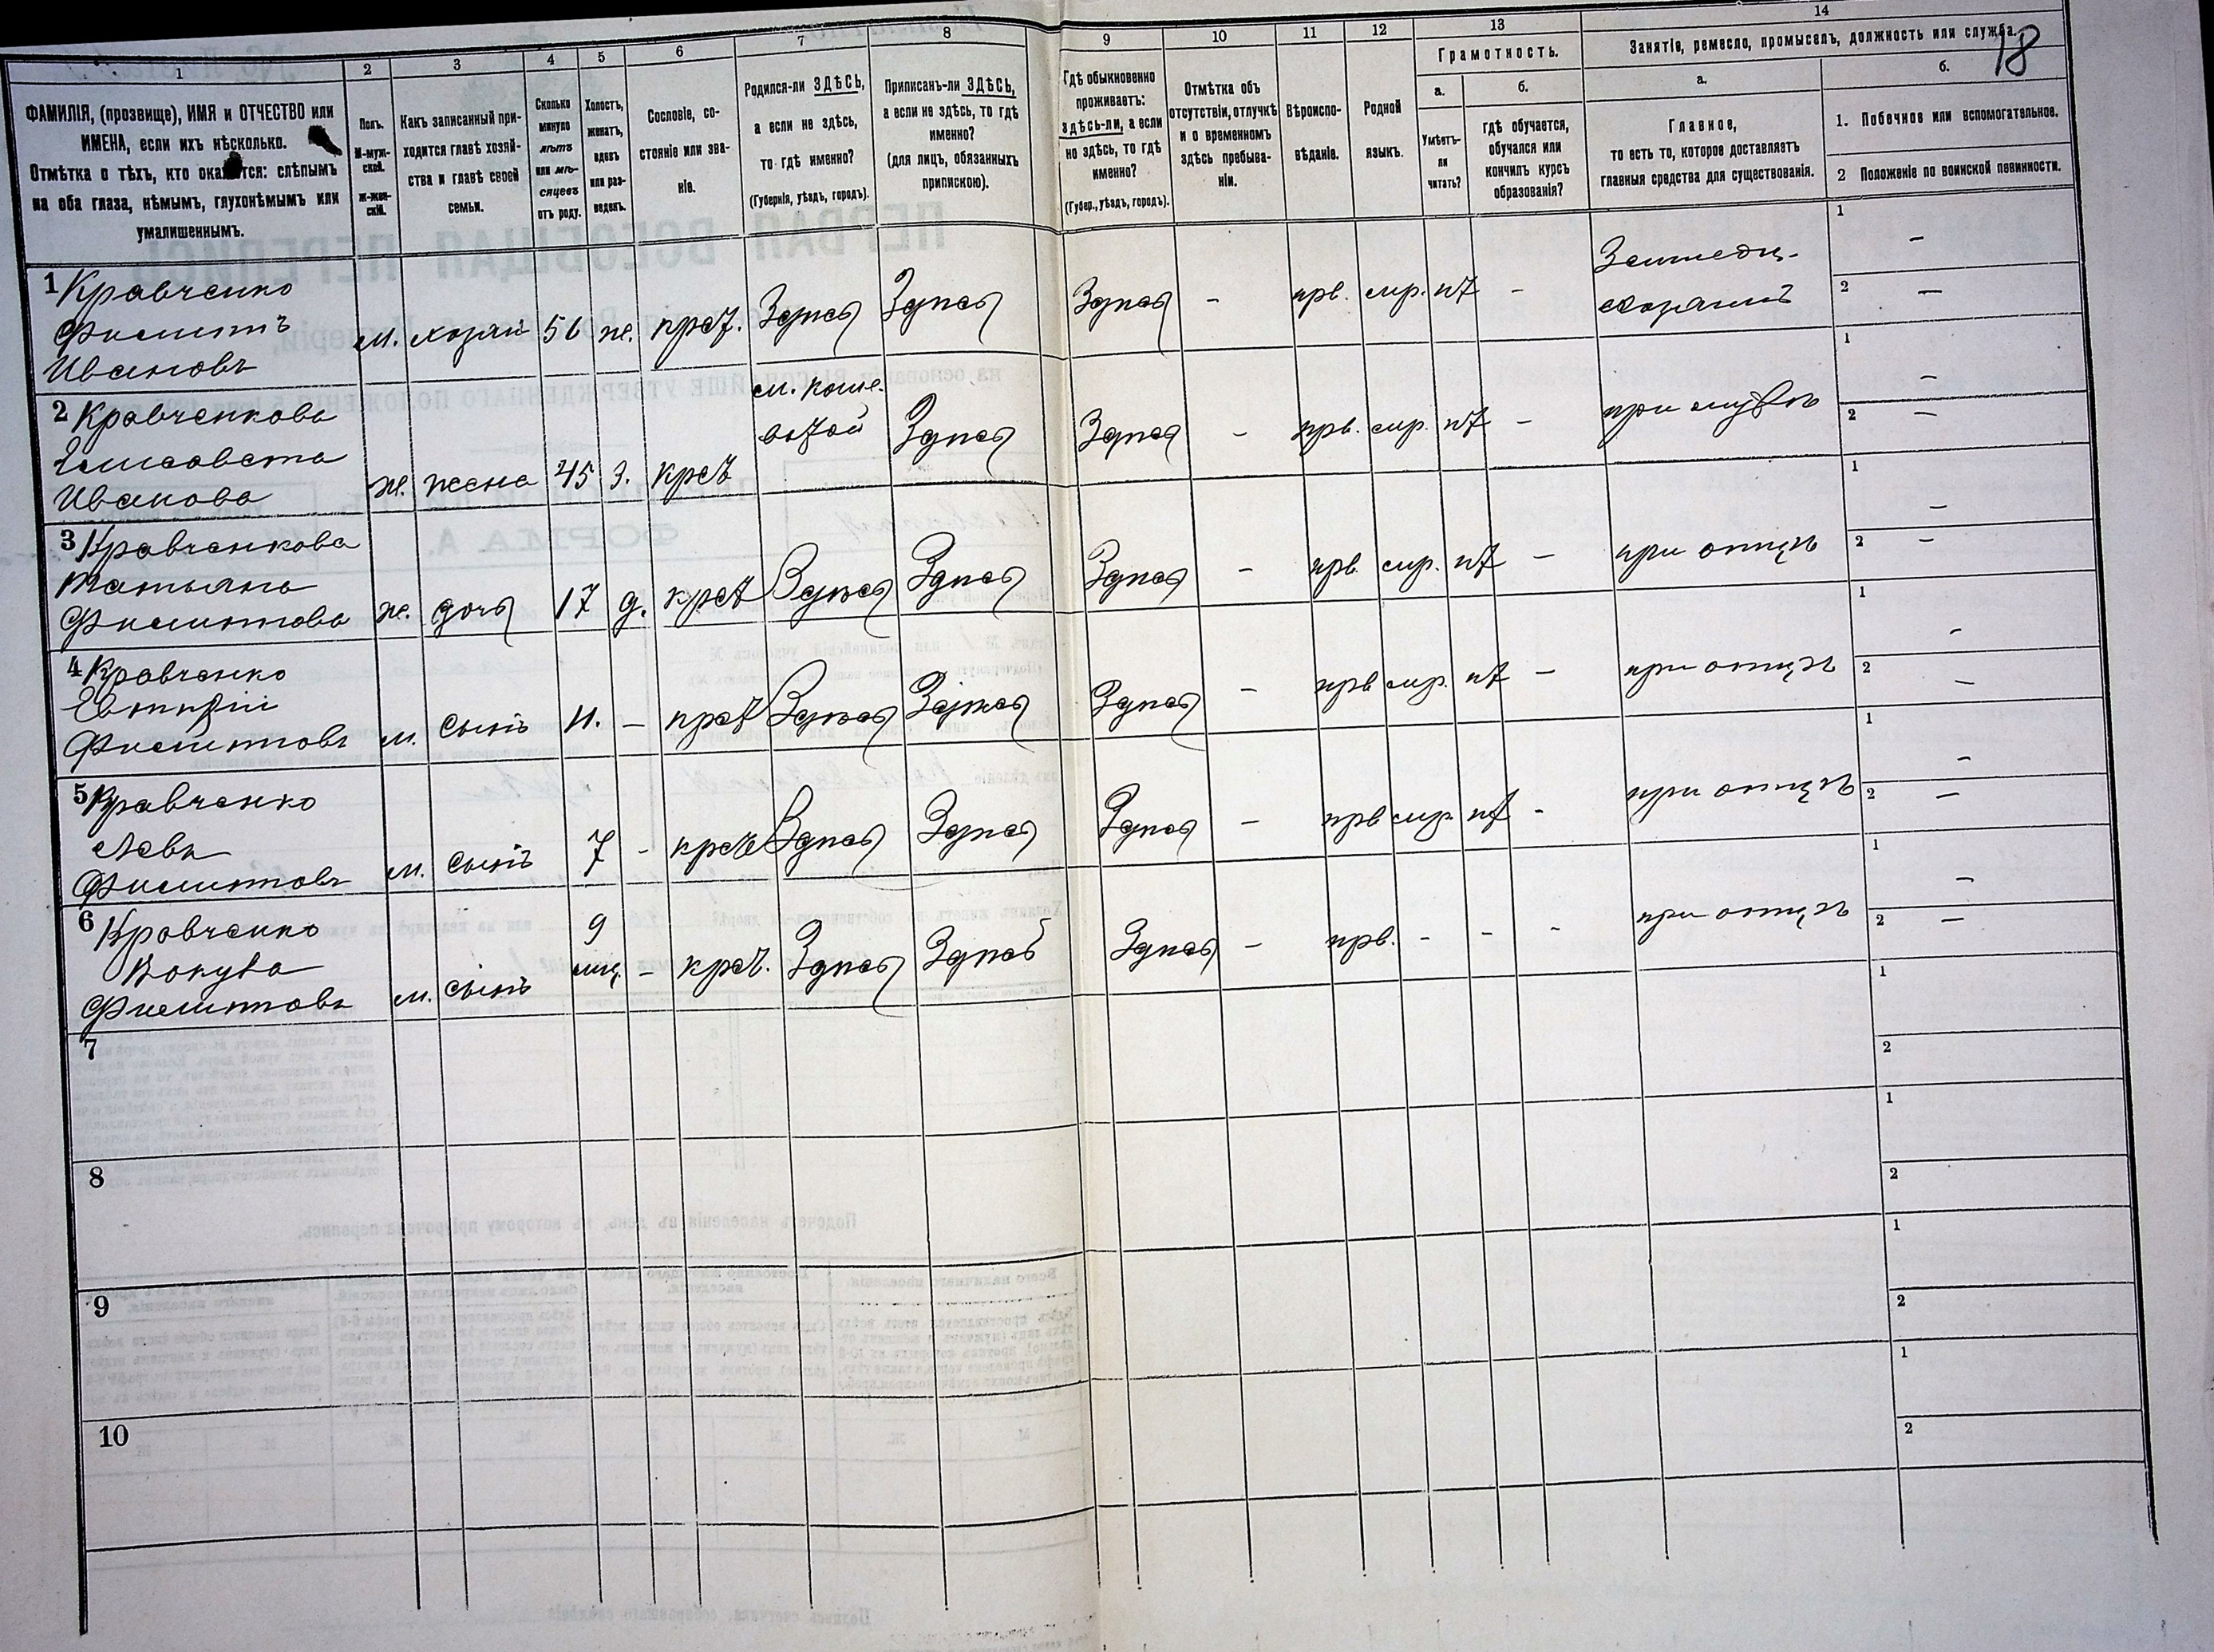 18
1 2 3 4 5 6 7 8 9 10 11 12 13 14
ФАМИЛІЯ, (прозвище), ИМЯ и ОТЧЕСТВО или
ИМЕНА, если ихъ нѣсколько.
Отмѣтка о тѣхъ, кто окажется: слѣпымъ
на оба глаза, нѣмымъ, глухонѣмымъ или
умалишеннымъ.
Полъ.
М-муж-
ской.
Ж-жен-
скій.
Какъ записанный при-
ходится главѣ хозяй-
ства и главѣ своей
семьи.
Сколько
минуло
лѣтъ
или мѣ-
сяцевъ
отъ роду.
Холостъ,
женатъ,
вдовъ
или раз-
веденъ.
Сословіе, со-
стояніе или зва-
ніе.
Родился-ли ЗДѢСЬ,
а если не здѣсь,
то гдѣ именно?
(Губернія, уѣздъ, городъ).
Приписанъ-ли ЗДѢСЬ,
а если не здѣсь, то гдѣ
именно?
(для лицъ, обязанныхъ
припискою).
Гдѣ обыкновенно
проживаетъ:
здѣсь-ли, а если
не здѣсь, то гдѣ
именно?
(Губер., уѣздъ, городъ).
Отмѣтка объ
отсутствіи, отлучкѣ
и о временномъ
здѣсь пребыва-
ніи.
Вѣроиспо-
вѣданіе.
Родной
языкъ.
Грамотность.
а.
Умѣетъ-
ли
читать?
б.
гдѣ обучается,
обучался или
кончилъ курсъ
образованія?
Занятіе, ремесло, промыселъ, должность или служба.
а.
Главное,
то есть то, которое доставляетъ
главныя средства для существованія.
б.
1. Побочное или вспомогательное.
2 Положеніе по воинской повинности.
1 Кравченко
Филиппъ
Ивановъ
м. хозяинъ 56 ж. крст. Здѣсь Здѣсь Здѣсь - прв. млр. нѣт -
Земледѣ-
1 -
2 -
2 Кравченкова
Елисавета
Иванова
ж. жена 45 з. крст Здѣсь Здѣсь - прв. млр. нѣт - при мужѣ
1 -
2 -
3 Кравченкова
Татьяна
Филиппова
ж. дочь 17 д. крст Здѣсь Здѣсь Здѣсь - прв. млр. нѣт - при отцѣ
1 -
2 -
4 Кравченко
Филипповъ
м. сынъ 11. - крст Здѣсь Здѣсь Здѣсь - прв млр. нѣт - при отцѣ
1 -
2 -
5 Кравченко
Левъ
Филипповъ
м. сынъ 7 - крст Здѣсь Здѣсь Здѣсь - прв млр. нѣт - при отцѣ
1 -
2 -
6 Кравченко
Вакула
Филипповъ
м. сынъ 9 мц. - крст. Здѣсь Здѣсь Здѣсь - прв. - - - при отцѣ
1 -
2 -
7 1
2
8 1
2
9 1
2
10 1
2